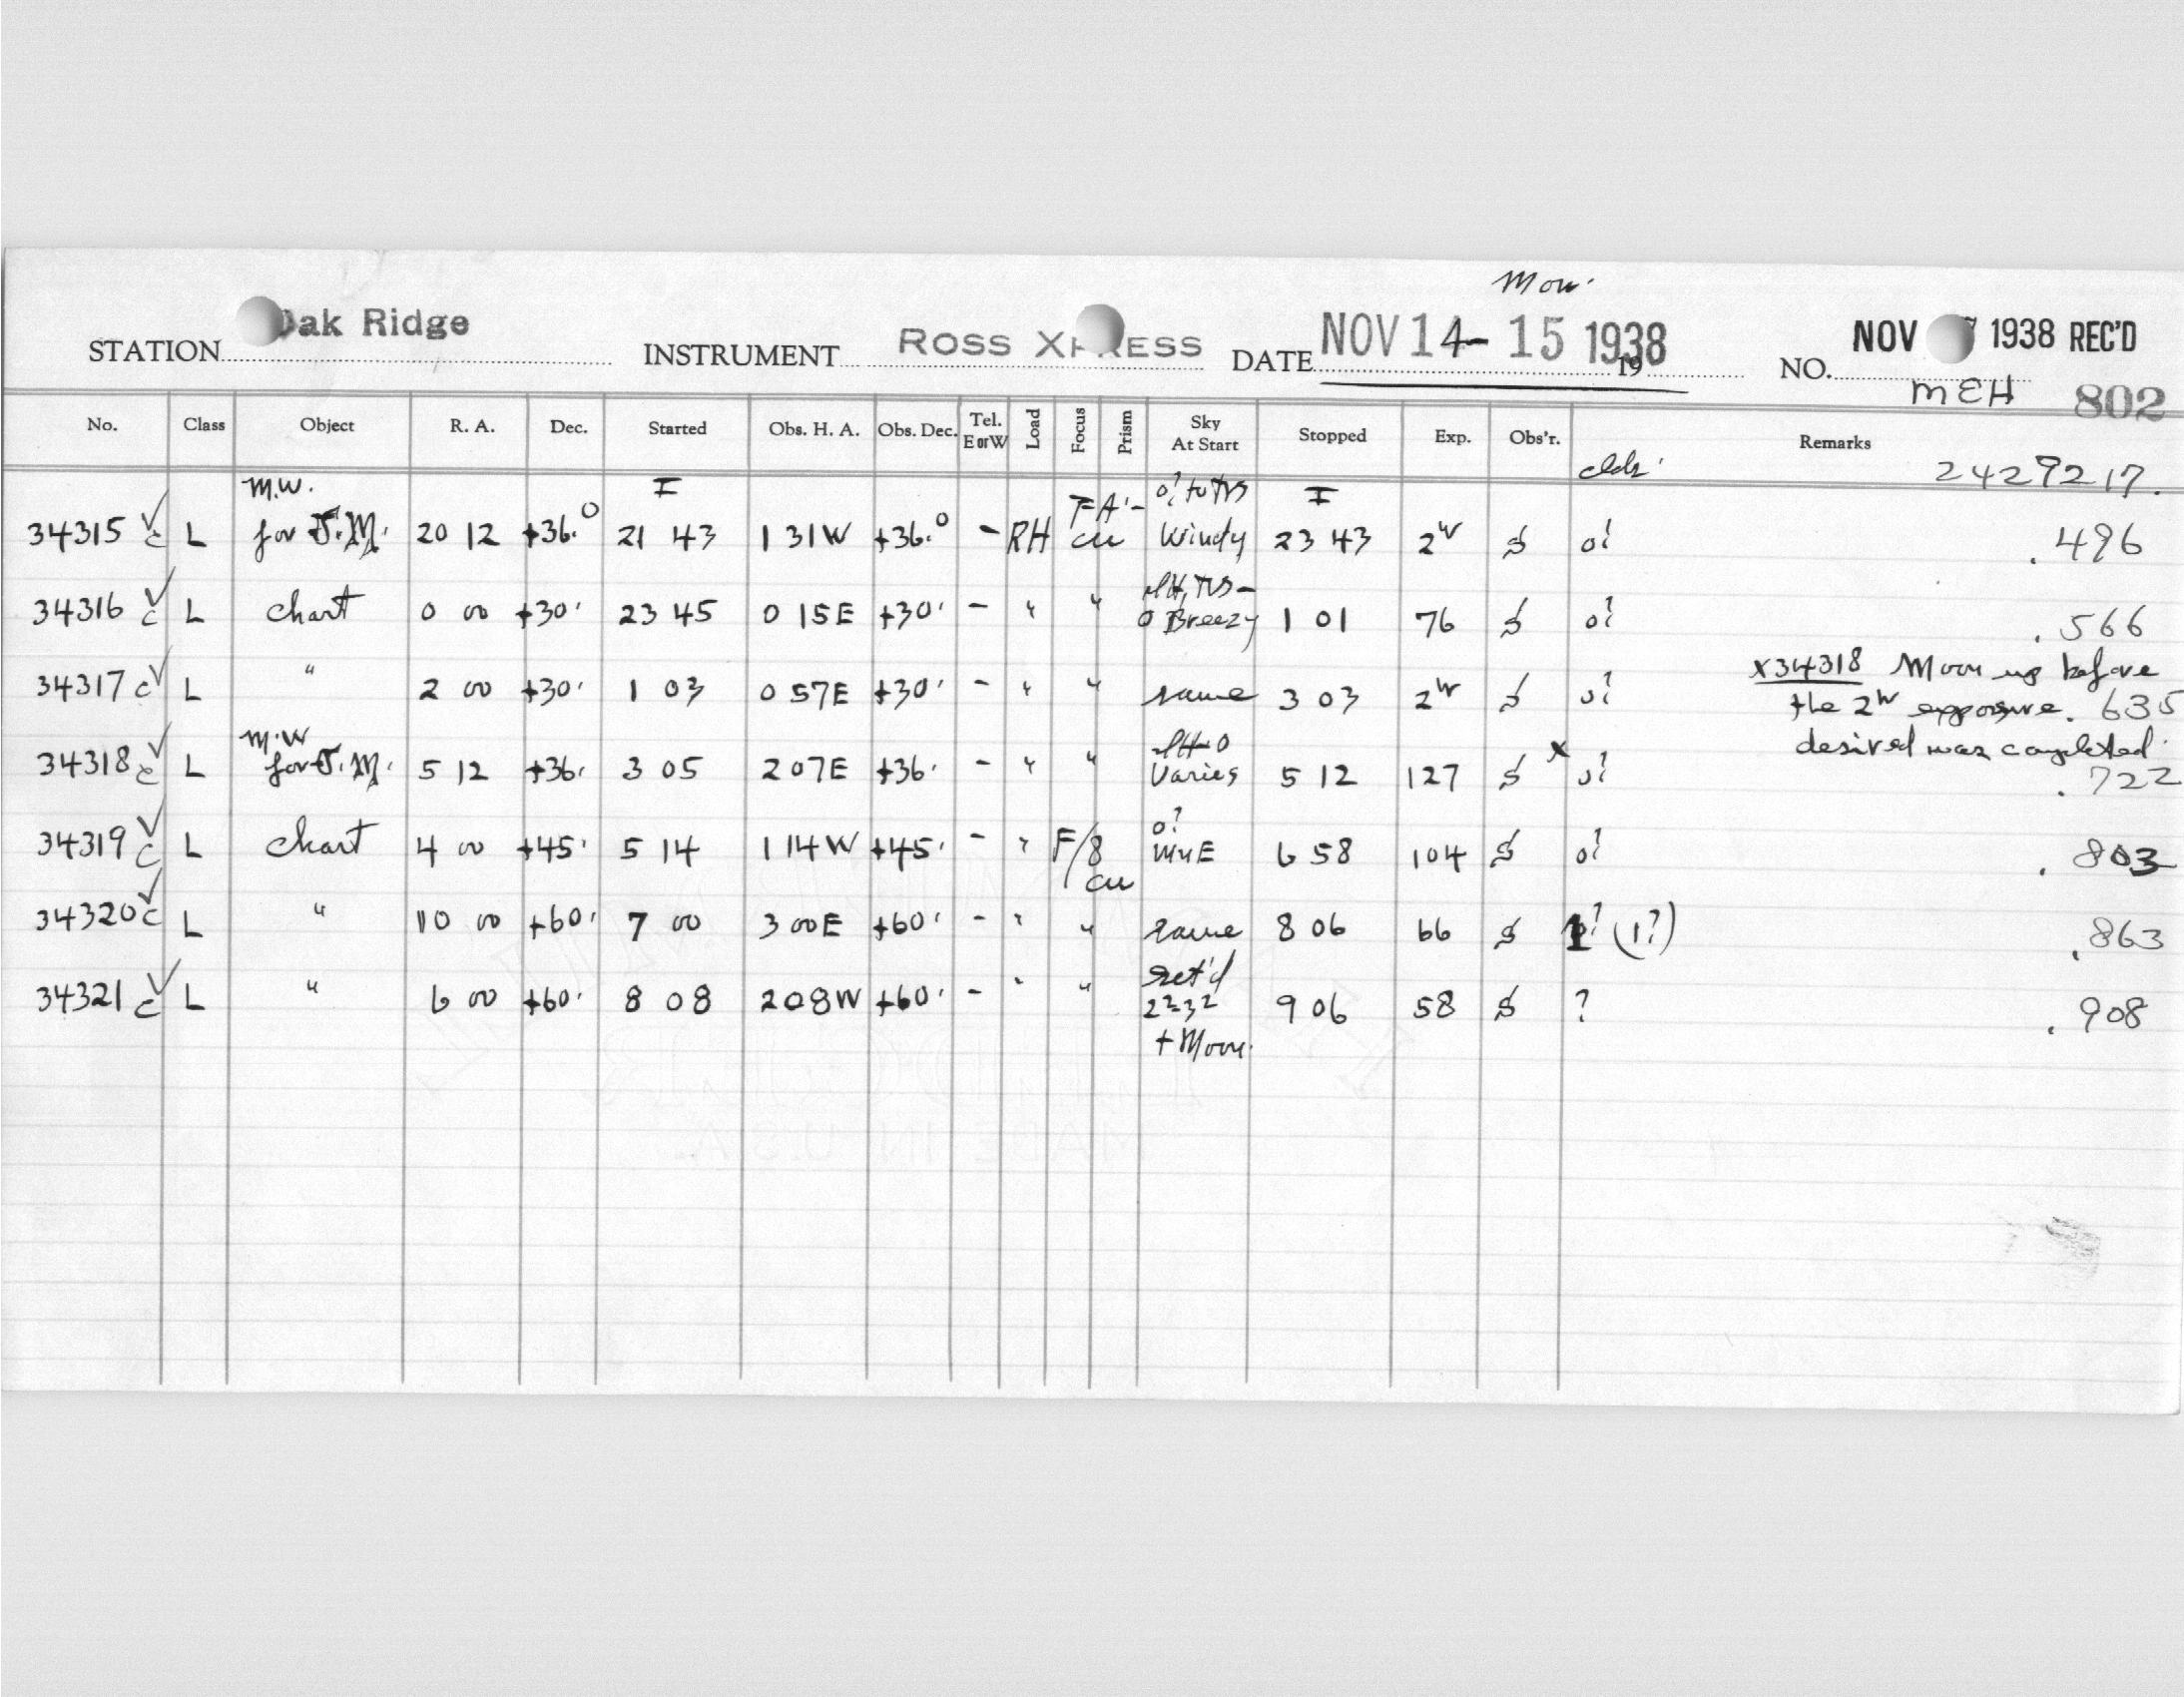 Mon.
STATION Oak Ridge INSTRUMENT ROSS XPRESS DATE NOV 14-15 1938 19 NO. NOV 7 1938 REC'D
MEH 802
No. Class Object R. A. Dec. Started Obs. H. A. Obs. Dec. Tel. E or W Load Focus Prism Sky At Start Stopped Exp. Obs'r. Remarks
2429217.
M.W. I o? to TVS I
34315 c L for J.M. 20 12 +36.° 21 43 1 31W +36.° - RH FA'- cu Windy 23 43 2ʰ S o? .496
34316 c L chart 0 00 +30' 23 45 0 15E +30' - " " TVS- o Breezy 1 01 76 S o? .566
34317 c L " 2 00 +30' 1 03 0 57E +30' - " " same 3 03 2ʰ S o? .635
x34318 Moon up before
the 2ʰ exposure
desired was completed.
34318 c L M.W for J.M. 5 12 +36. 3 05 2 07E +36. - " " Varies 5 12 127 S x o? .722
34319 c L chart 4 00 +45' 5 14 1 14W +45' - " F/8 cu o? MnE 6 58 104 S o? .803
34320 c L " 10 00 +60' 7 00 3 00E +60' - " " same 8 06 66 S 1? (1?) .863
34321 c L " 6 00 +60' 8 08 2 08W +60' - " " + Moon. 9 06 58 S ? .908
MADE IN U.S.A.